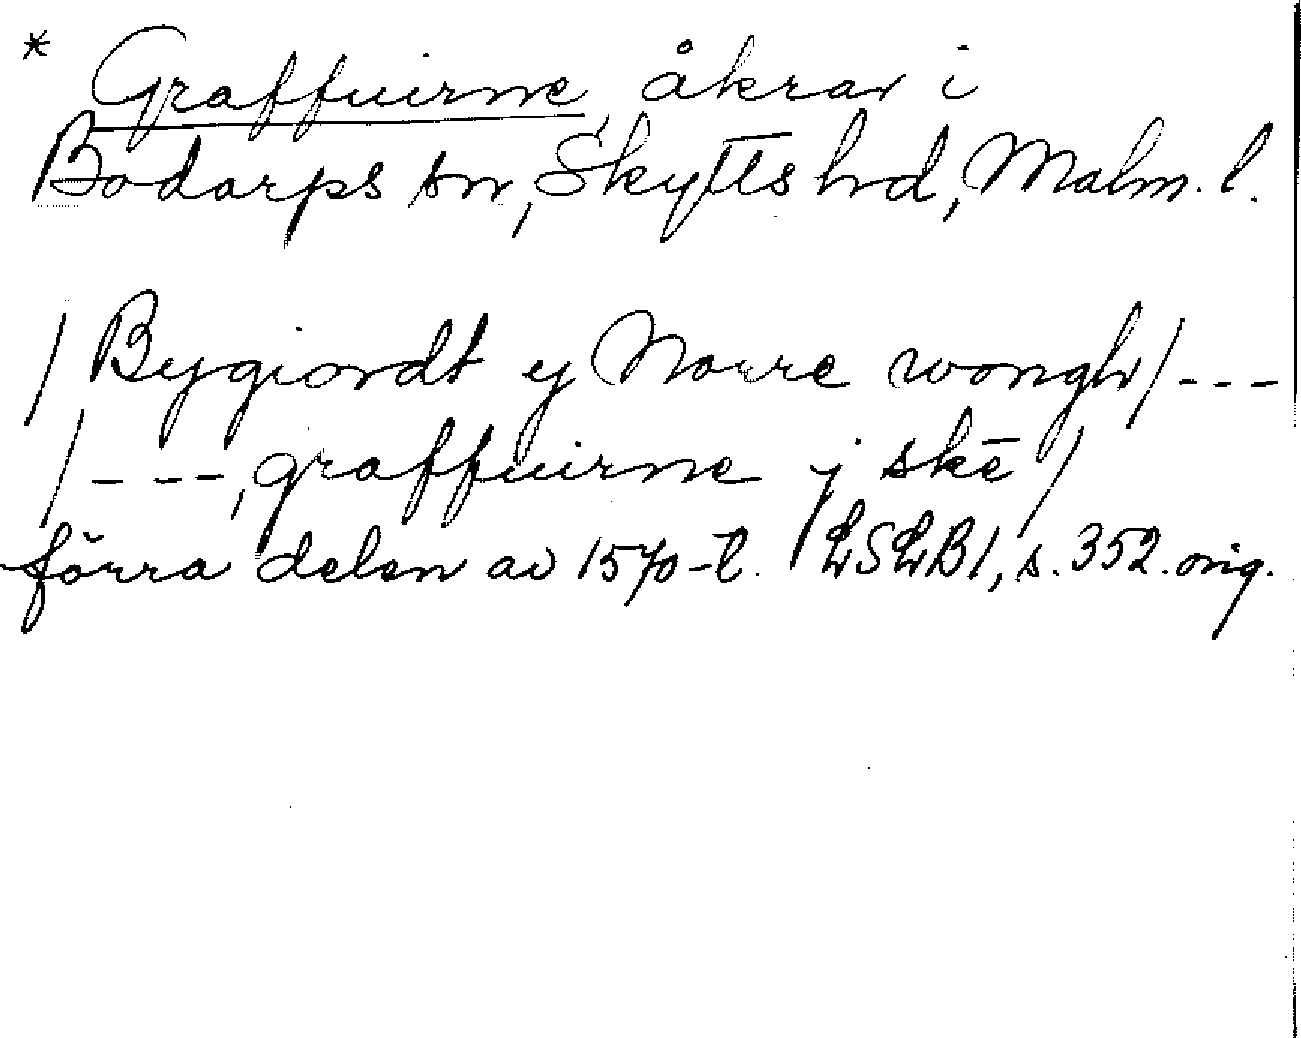 * Graffuirne, åkrar i
Bodarps sn, Skytts hd, Malm. l.
/ Bygiordt y Norre wongh / - - -
/ - - -, graffuirne j skē /
förra delen av 1570-t. LSLB1, s. 352. orig.